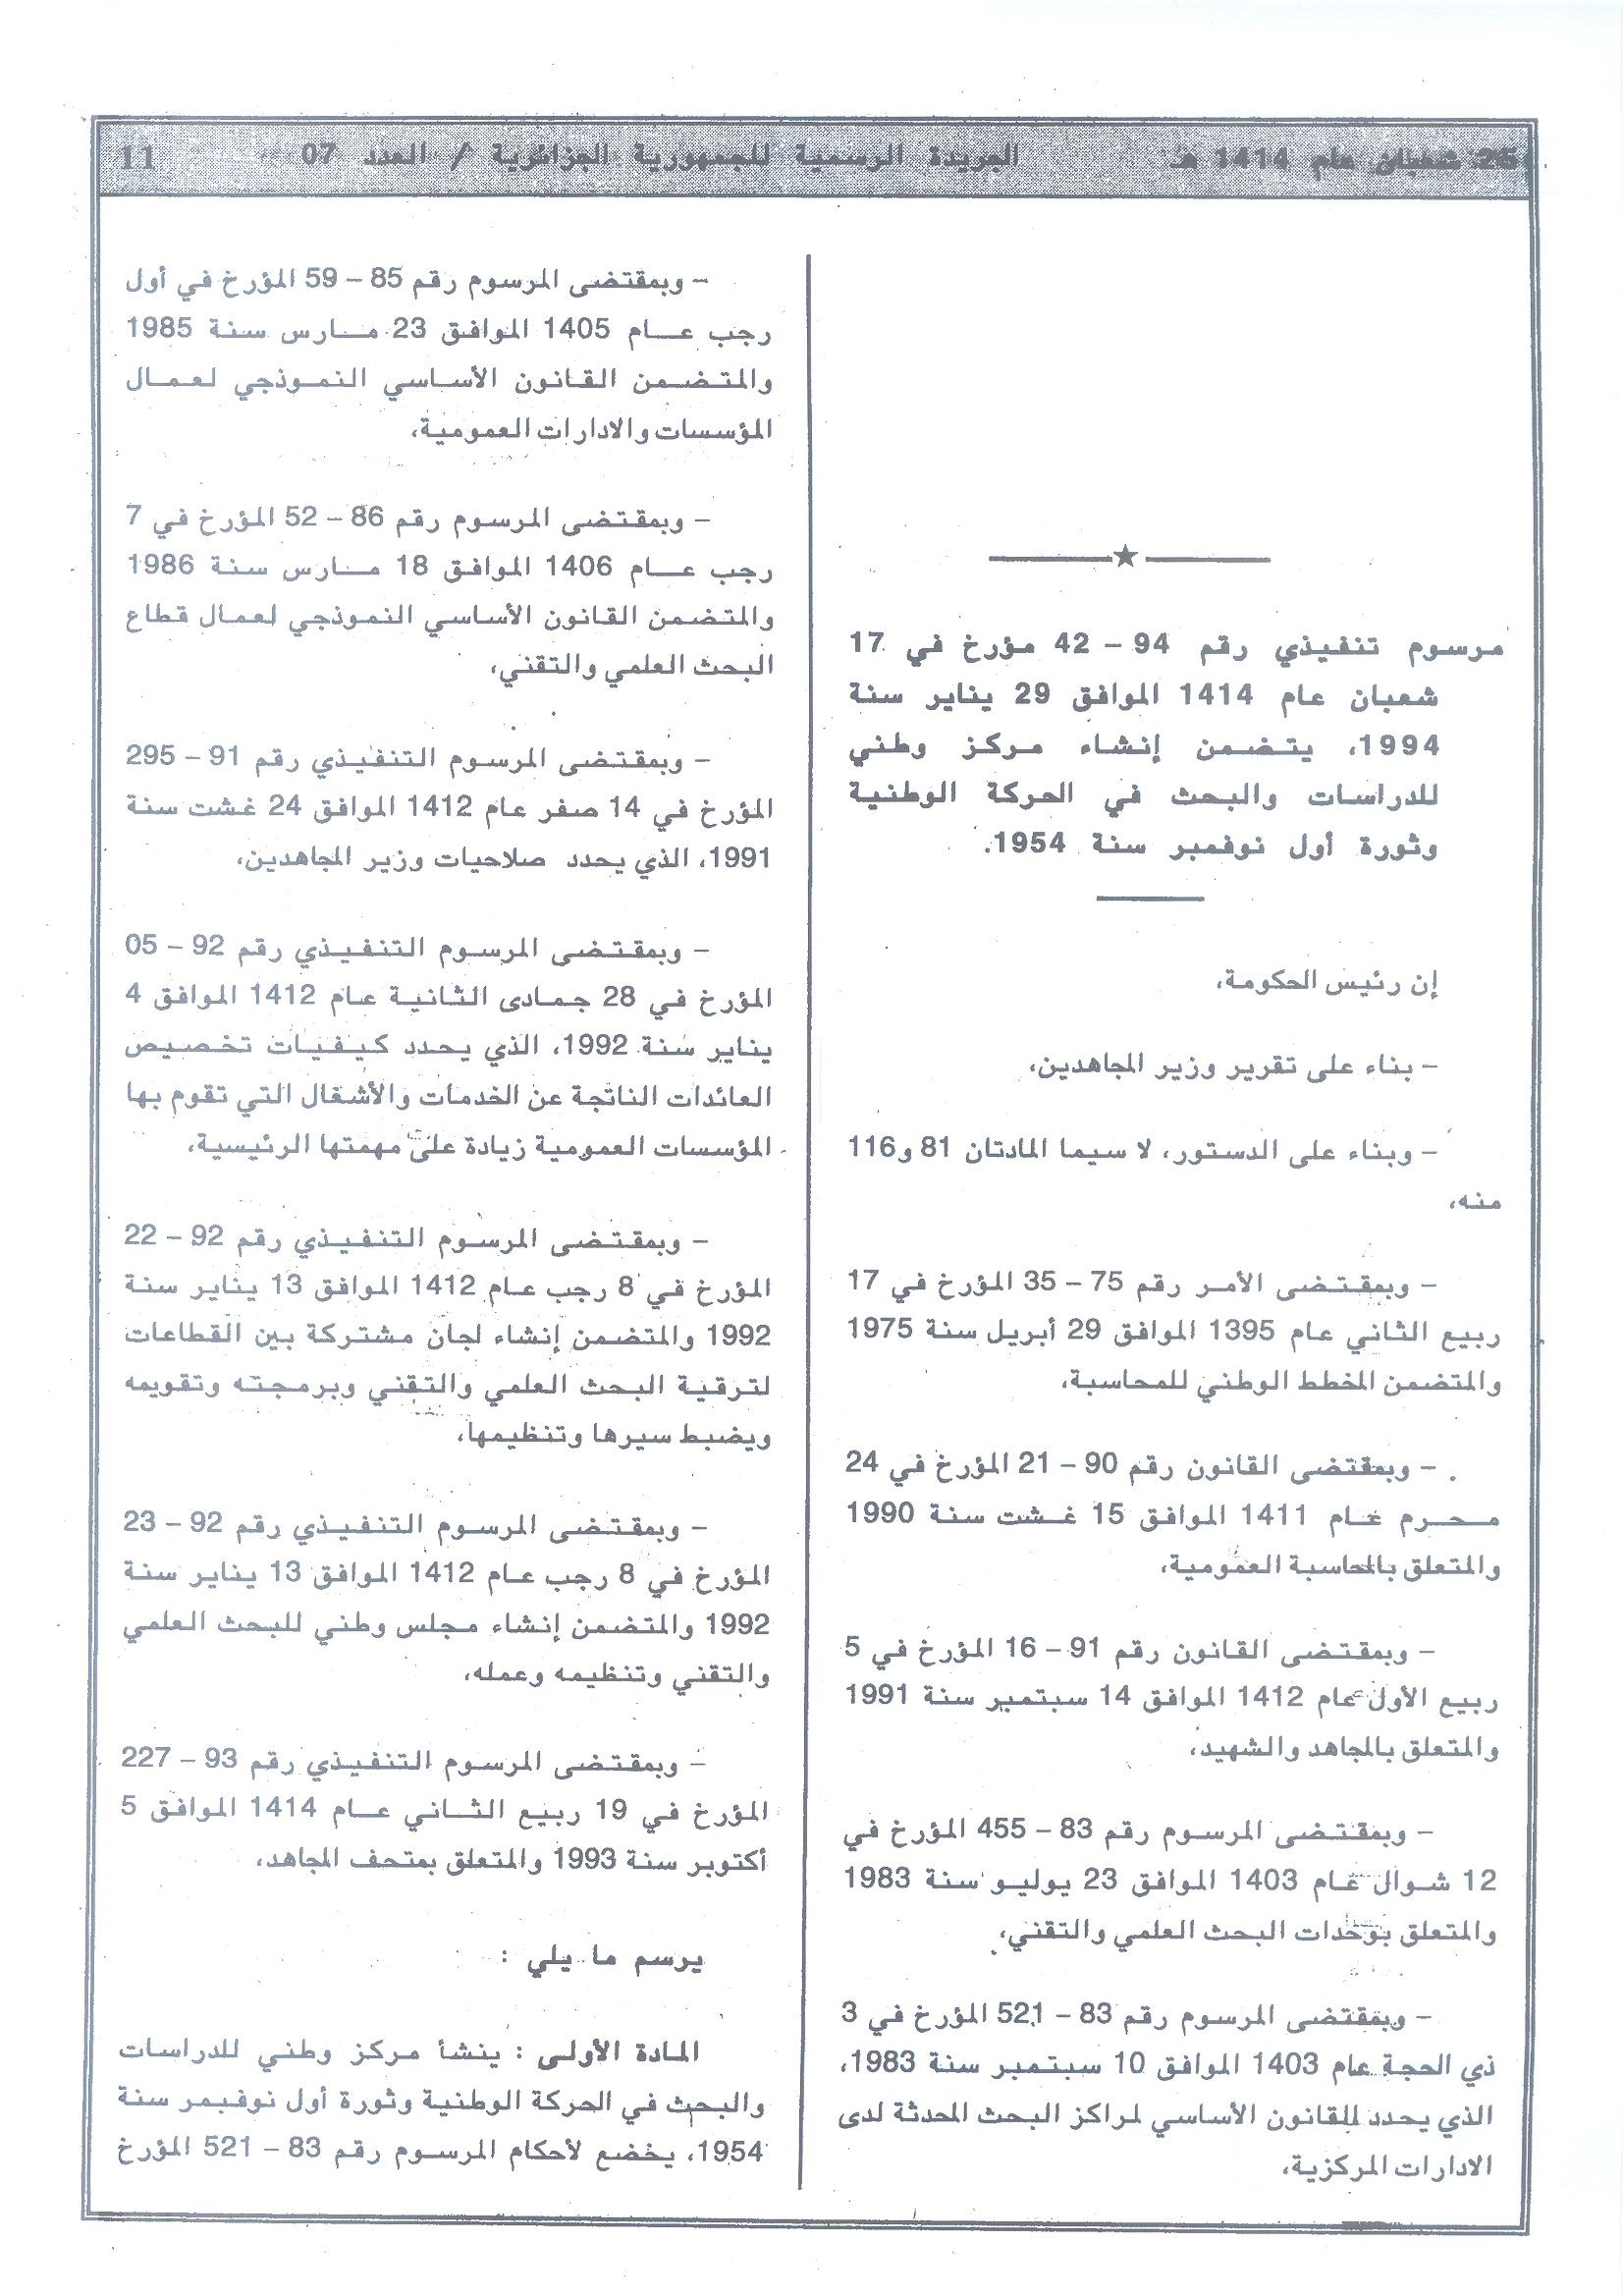 26 شعبان عام 1414 هـ
الجريدة الرسمية للجمهورية الجزائرية / العدد 07
11
مرسوم تنفيذي رقم 94 – 42 مؤرخ في 17
شعبان عام 1414 الموافق 29 يناير سنة
1994، يتضمن إنشاء مركز وطني
للدراسات والبحث في الحركة الوطنية
وثورة أول نوفمبر سنة 1954.
إن رئيس الحكومة،
– بناء على تقرير وزير المجاهدين،
– وبناء على الدستور، لا سيما المادتان 81 و116
منه،
– وبمقتضى الأمر رقم 75 – 35 المؤرخ في 17
ربيع الثاني عام 1395 الموافق 29 أبريل سنة 1975
والمتضمن المخطط الوطني للمحاسبة،
– وبمقتضى القانون رقم 90 – 21 المؤرخ في 24
محرم عام 1411 الموافق 15 غشت سنة 1990
والمتعلق بالمحاسبة العمومية،
– وبمقتضى القانون رقم 91 – 16 المؤرخ في 5
ربيع الأول عام 1412 الموافق 14 سبتمبر سنة 1991
والمتعلق بالمجاهد والشهيد،
– وبمقتضى المرسوم رقم 83 – 455 المؤرخ في
12 شوال عام 1403 الموافق 23 يوليو سنة 1983
والمتعلق بوحدات البحث العلمي والتقني،
– وبمقتضى المرسوم رقم 83 – 521 المؤرخ في 3
ذي الحجة عام 1403 الموافق 10 سبتمبر سنة 1983،
الذي يحدد القانون الأساسي لمراكز البحث المحدثة لدى
الادارات المركزية،
– وبمقتضى المرسوم رقم 85 – 59 المؤرخ في أول
رجب عام 1405 الموافق 23 مارس سنة 1985
والمتضمن القانون الأساسي النموذجي لعمال
المؤسسات والادارات العمومية،
– وبمقتضى المرسوم رقم 86 – 52 المؤرخ في 7
رجب عام 1406 الموافق 18 مارس سنة 1986
والمتضمن القانون الأساسي النموذجي لعمال قطاع
البحث العلمي والتقني،
– وبمقتضى المرسوم التنفيذي رقم 91 – 295
المؤرخ في 14 صفر عام 1412 الموافق 24 غشت سنة
1991، الذي يحدد صلاحيات وزير المجاهدين،
– وبمقتضى المرسوم التنفيذي رقم 92 – 05
المؤرخ في 28 جمادى الثانية عام 1412 الموافق 4
يناير سنة 1992، الذي يحدد كيفيات تخصيص
العائدات الناتجة عن الخدمات والأشغال التي تقوم بها
المؤسسات العمومية زيادة على مهمتها الرئيسية،
– وبمقتضى المرسوم التنفيذي رقم 92 – 22
المؤرخ في 8 رجب عام 1412 الموافق 13 يناير سنة
1992 والمتضمن إنشاء لجان مشتركة بين القطاعات
لترقية البحث العلمي والتقني وبرمجته وتقويمه
ويضبط سيرها وتنظيمها،
– وبمقتضى المرسوم التنفيذي رقم 92 – 23
المؤرخ في 8 رجب عام 1412 الموافق 13 يناير سنة
1992 والمتضمن إنشاء مجلس وطني للبحث العلمي
والتقني وتنظيمه وعمله،
– وبمقتضى المرسوم التنفيذي رقم 93 – 227
المؤرخ في 19 ربيع الثاني عام 1414 الموافق 5
أكتوبر سنة 1993 والمتعلق بمتحف المجاهد،
يرسم ما يلي :
المادة الأولى : ينشأ مركز وطني للدراسات
والبحث في الحركة الوطنية وثورة أول نوفبمر سنة
1954، يخضع لأحكام المرسوم رقم 83 – 521 المؤرخ